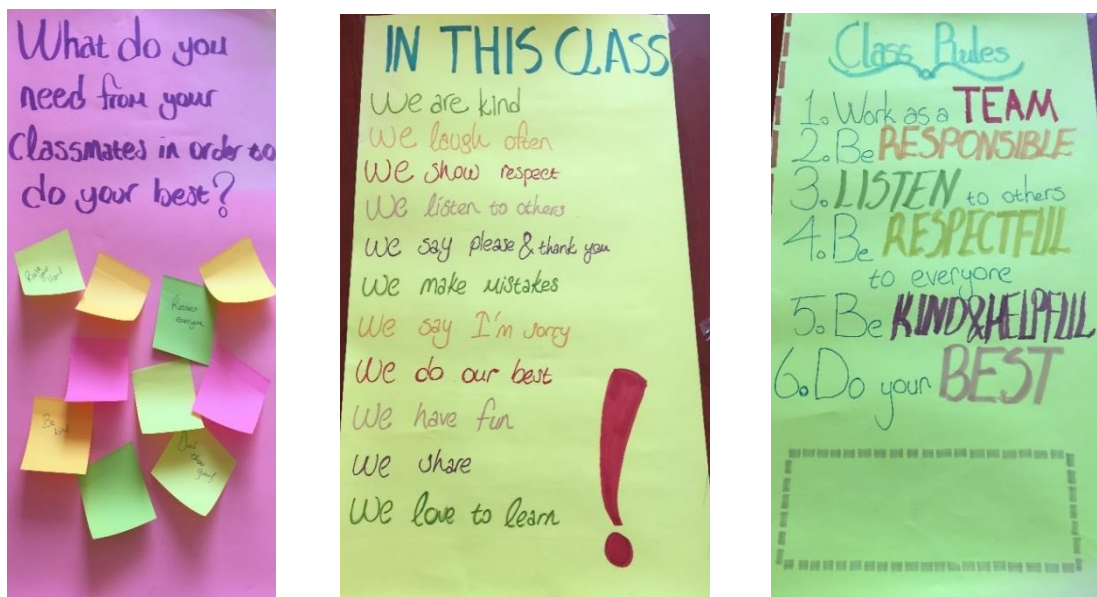 What do you
need from your
Classmates in order to
do your best?
Respect
everyone
Be
kind
IN THIS CLASS
We are kind
We laugh often
We show respect
We listen to others
We say please & thank you
We make mistakes
We say I'm sorry
We do our best
We have fun
We share
We love to learn
!
Class Rules
1. Work as a TEAM
2. Be RESPONSIBLE
3. LISTEN to others
4. Be RESPECTFUL
to everyone
5. Be KIND & HELPFUL
6. Do your BEST